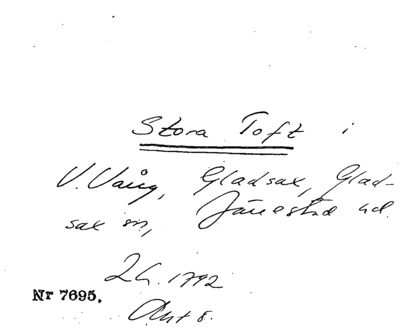 Stora Toft i
V. Vång, Gladsax, Glad-
sax sn, Järrestad hd.
LH. 1792
Nr 7695.
Akt 8.